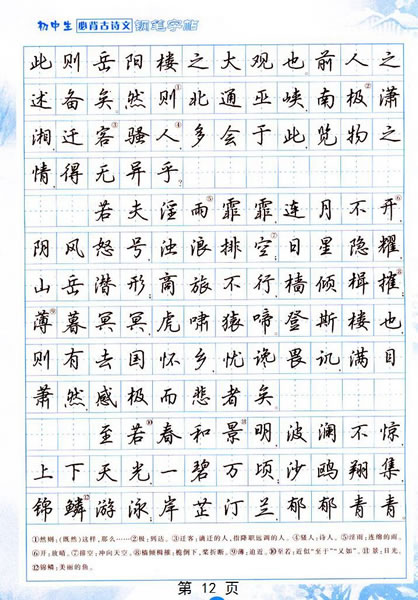 初中生 必背古诗文 钢笔字帖
此则岳阳楼之大观也前人之
述备矣然则①北通巫峡南极②潇
湘迁客③骚人④多会于此览物之
情得无异乎
若夫淫雨⑤霏霏连月不开⑥
阴风怒号浊浪排空⑦日星隐耀
山岳潜形商旅不行樯倾楫摧⑧
薄⑨暮冥冥虎啸猿啼登斯楼也
则有去国怀乡忧谗畏讥满目
萧然感极而悲者矣
至若⑩春和景⑪明波澜不惊
上下天光一碧万顷沙鸥翔集
锦鳞⑫游泳岸芷汀兰郁郁青青
①然则:(既然)这样,那么……②极:到达。③迁客:谪迁的人,指降职远调的人。④骚人:诗人。⑤淫雨:连绵的雨。
⑥开:放晴。⑦排空:冲向天空。⑧樯倾楫摧:桅倒下,桨折断。⑨薄:迫近。⑩至若:近似“至于”“又如”。⑪景:日光。
⑫锦鳞:美丽的鱼。
第 12 页